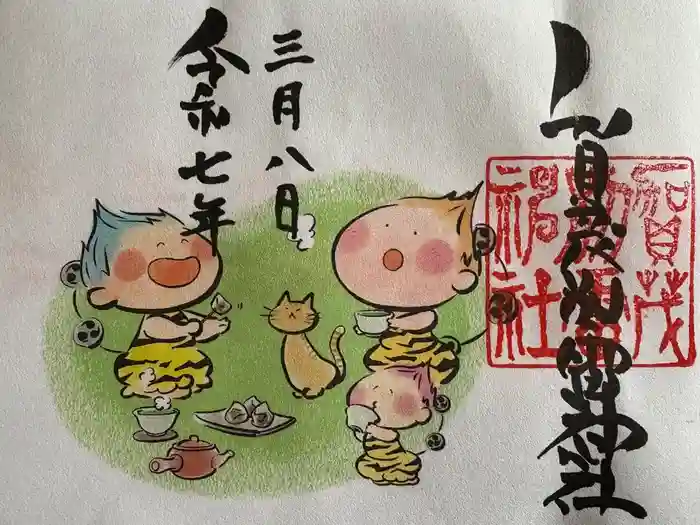 賀茂別雷神社
賀茂
別雷
神社
令和七年
三月八日